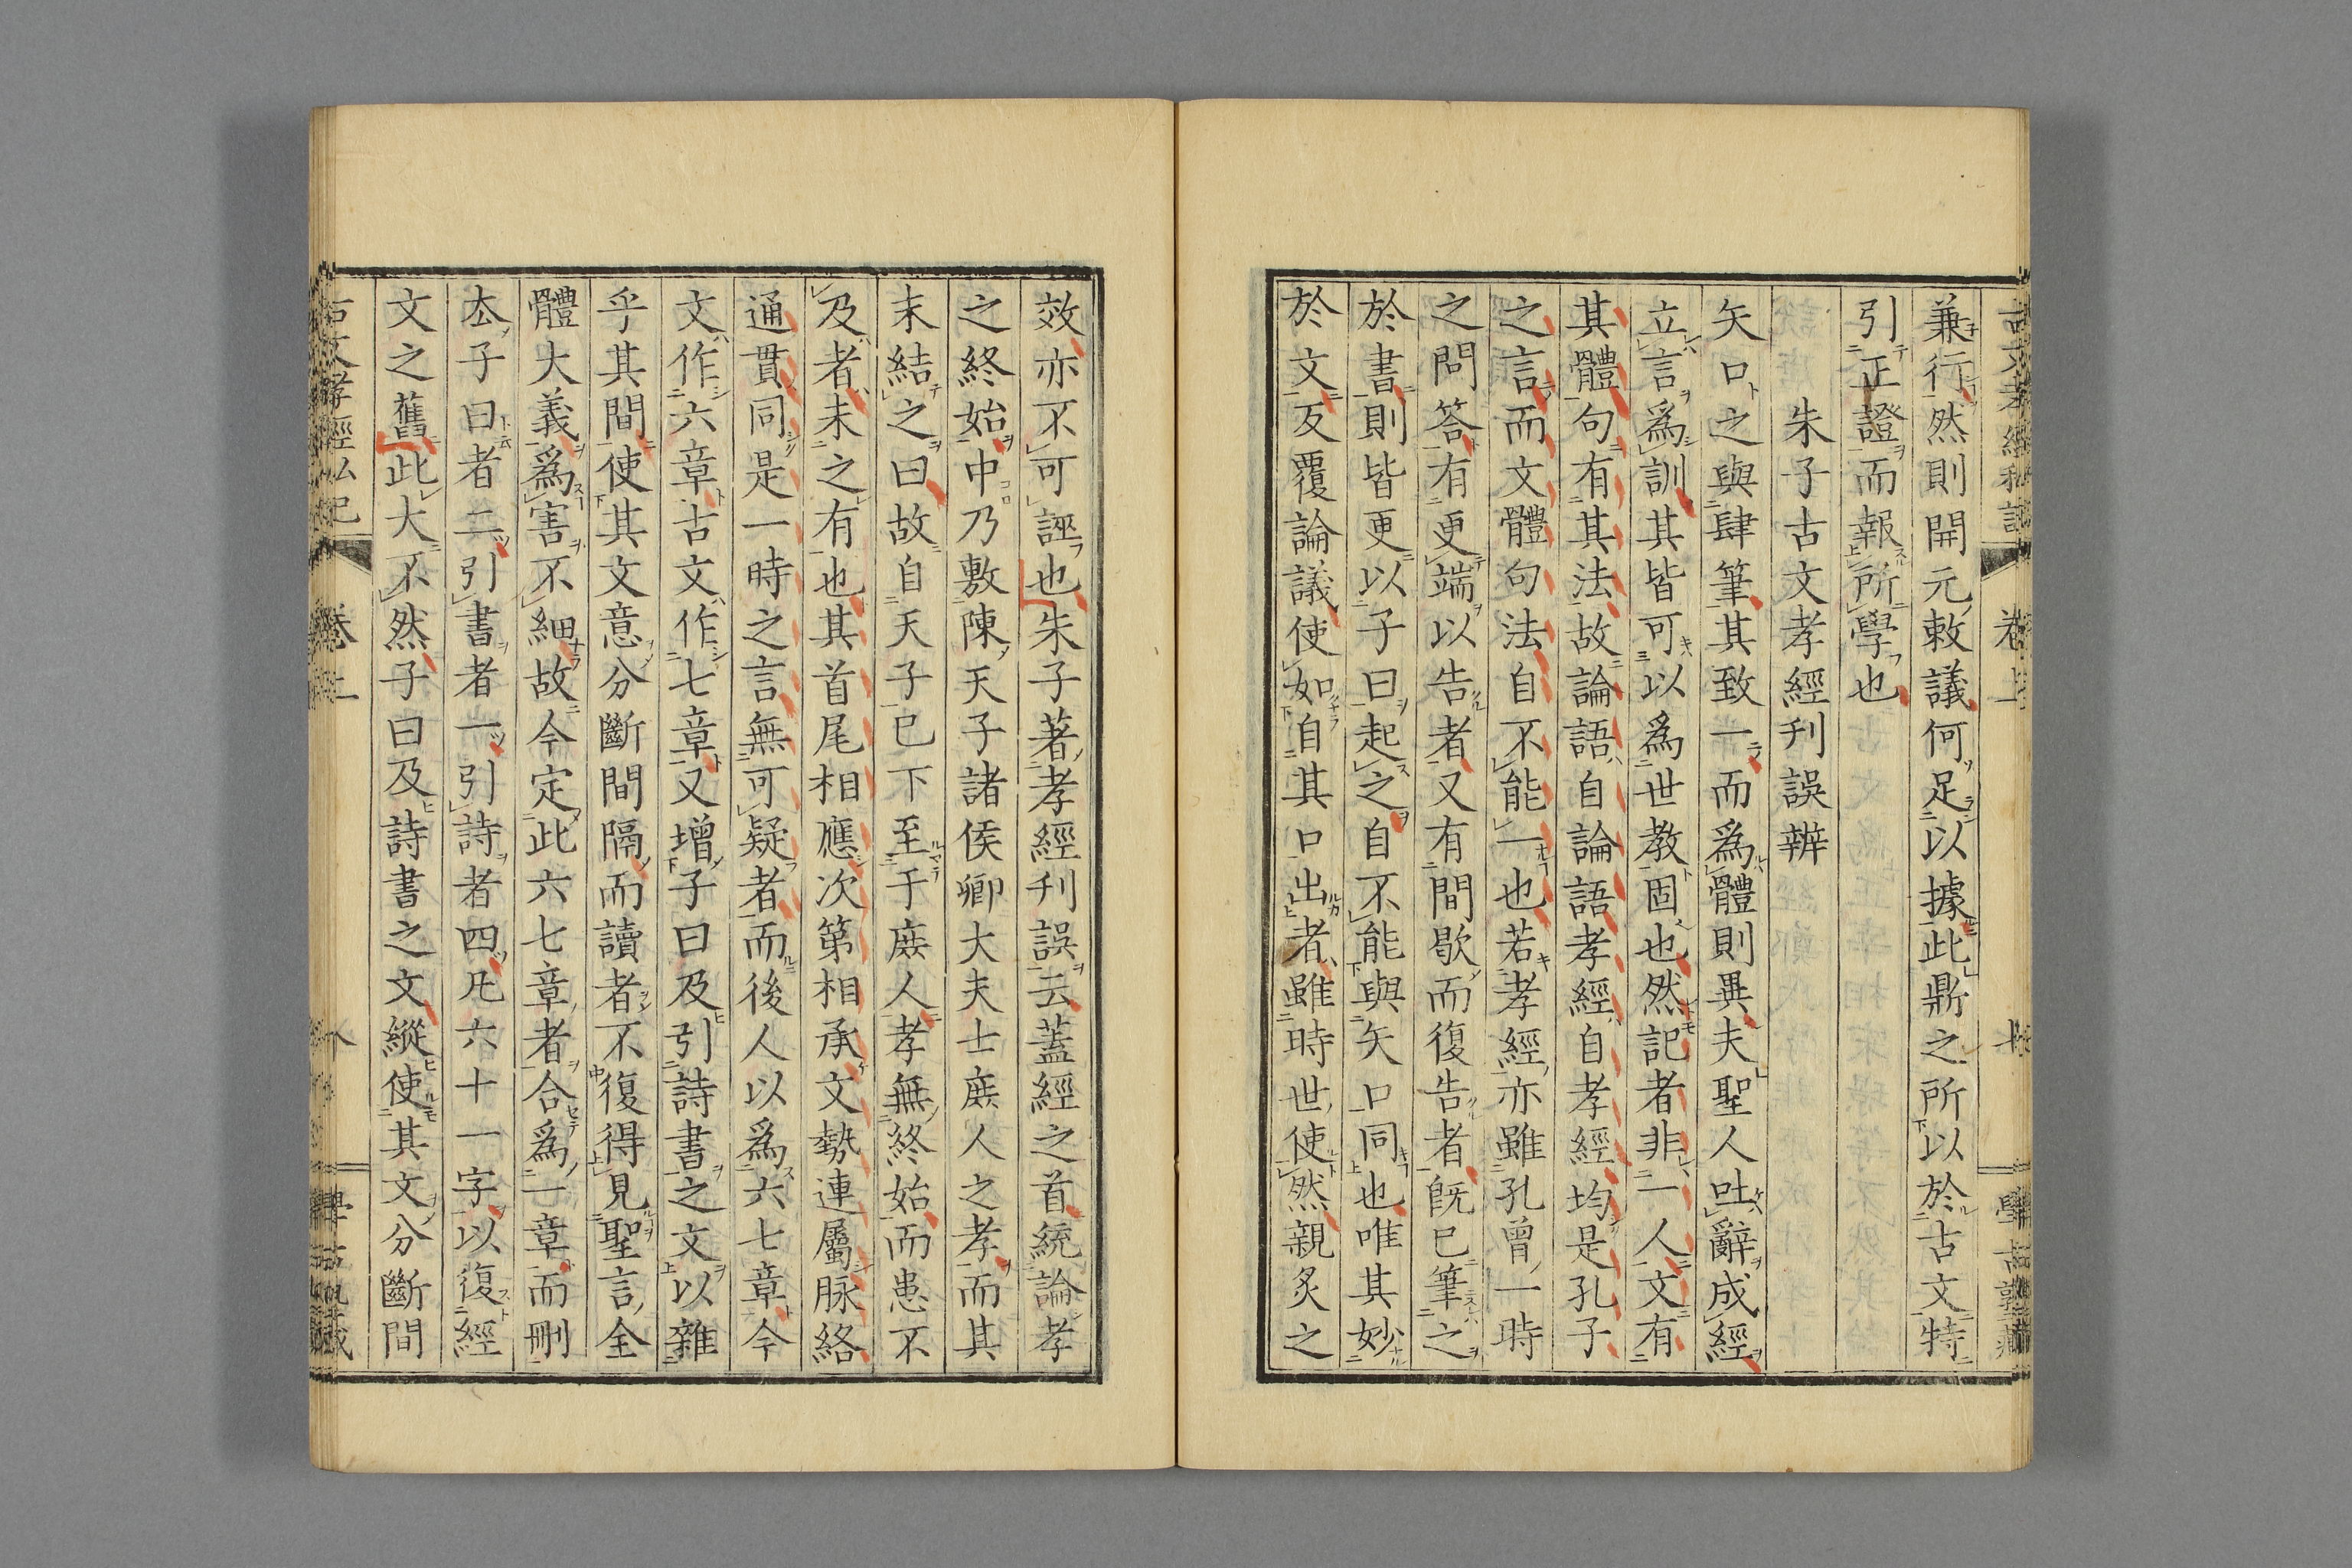 古文孝經私記 卷上 學古塾藏
兼行然則開元敕議何足以據此鼎之所以於古文特
引正證而報所學也
朱子古文孝經刋誤辨
矢口之與肆筆其致一而爲體則異夫聖人吐辭成經
立言爲訓其皆可以爲世教固也然記者非一人文有
其體句有其法故論語自論語孝經自孝經均是孔子
之言而文體句法自不能一也若孝經亦雖孔曾一時
之問答有更端以告者又有間歇而復告者既已筆之
於書則皆更以子曰起之自不能與矢口同也唯其妙
於文反覆論議使如自其口出者雖時世使然親炙之
效亦不可誣也朱子著孝經刋誤云蓋經之首統論孝
之終始中乃敷陳天子諸侯卿大夫士庶人之孝而其
末結之曰故自天子已下至于庶人孝無終始而患不
及者未之有也其首尾相應次第相承文勢連屬脉絡
通貫同是一時之言無可疑者而後人以爲六七章今
文作六章古文作七章又增子曰及引詩書之文以雜
乎其間使其文意分斷間隔而讀者不復得見聖言全
體大義爲害不細故今定此六七章者合爲一章而刪
厺子曰者二引書者一引詩者四凡六十一字以復經
文之舊此大不然子曰及詩書之文縱使其文分斷間
古文孝經私記 卷上 八 學古塾藏